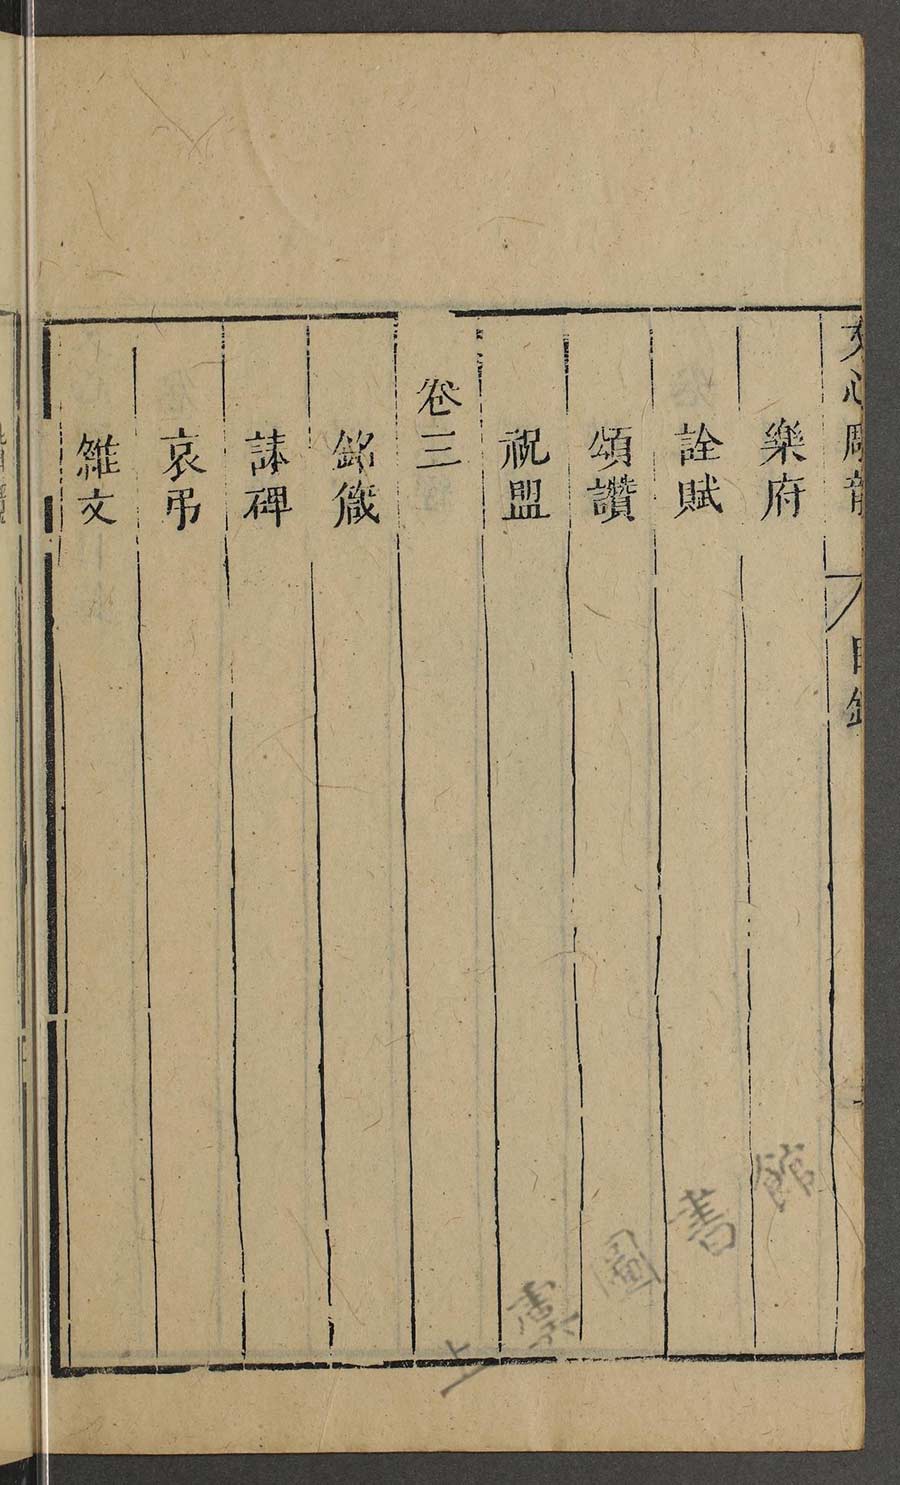 文心雕龍 目錄
樂府
詮賦
頌讚
祝盟
卷三
銘箴
誄碑
哀弔
雜文
上虞圖書館